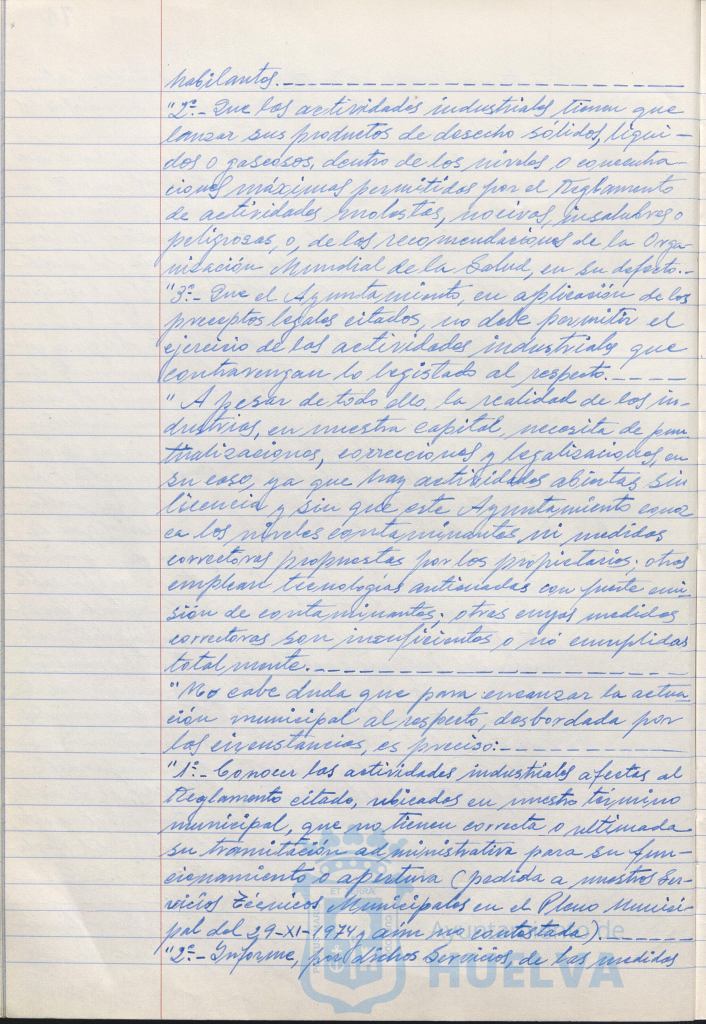 habilantes.
"2º.- Que las actividades industriales tienen que
lanzar sus productos de desecho sólidos, líqui-
dos o gaseosos, dentro de los niveles o concentra-
ciones máximas permitidos por el Reglamento
de actividades molestas, nocivas, insalubres o
peligrosas, o, de las recomendaciones de la Orga-
nización Mundial de la Salud, en su defecto.-
"3º.- Que el Ayuntamiento, en aplicación de los
preceptos legales citados, no debe permitir el
ejercicio de las actividades industriales que
contravengan lo legislado al respecto.----
"A pesar de todo ello, la realidad de las in-
dustrias, en nuestra capital, necesita de pun-
tualizaciones, correcciones y legalizaciones, en
su caso, ya que hay actividades abiertas sin
licencia y sin que este Ayuntamiento conoz
ca los niveles contaminantes ni medidas
correctoras propuestas por los propietarios; otras
emplean tecnologías anticuadas con fuerte emi-
sión de contaminantes; otras cuyas medidas
correctoras son insuficientes o no cumplidas
totalmente.
"No cabe duda que para encauzar la actua-
ción municipal al respecto, desbordada por
las circunstancias, es preciso:
"1º.- Conocer las actividades industriales afectas al
Reglamento citado, ubicadas en nuestro término
municipal, que no tienen correcta o ultimada
su tramitación administrativa para su fun-
cionamiento o apertura (pedida a nuestros Ser-
vicios Técnicos Municipales en el Pleno Munici-
pal del 29-XI-1974 y aún no contestada).
"2º.- Informe, por dichos Servicios, de las medidas
Ayuntamiento de
HUELVA